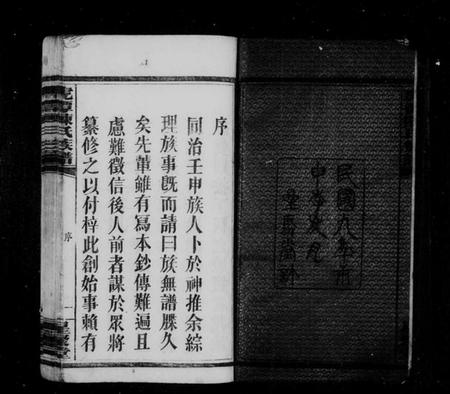 民國九年
序
同治壬申族人卜於神推余綜
理族事既而請曰族無譜牒久
矣先輩雖有寫本鈔傳難遍且
慮難徵信後人前者謀於眾將
纂修之以付梓此創始事賴有
陳氏族譜
序